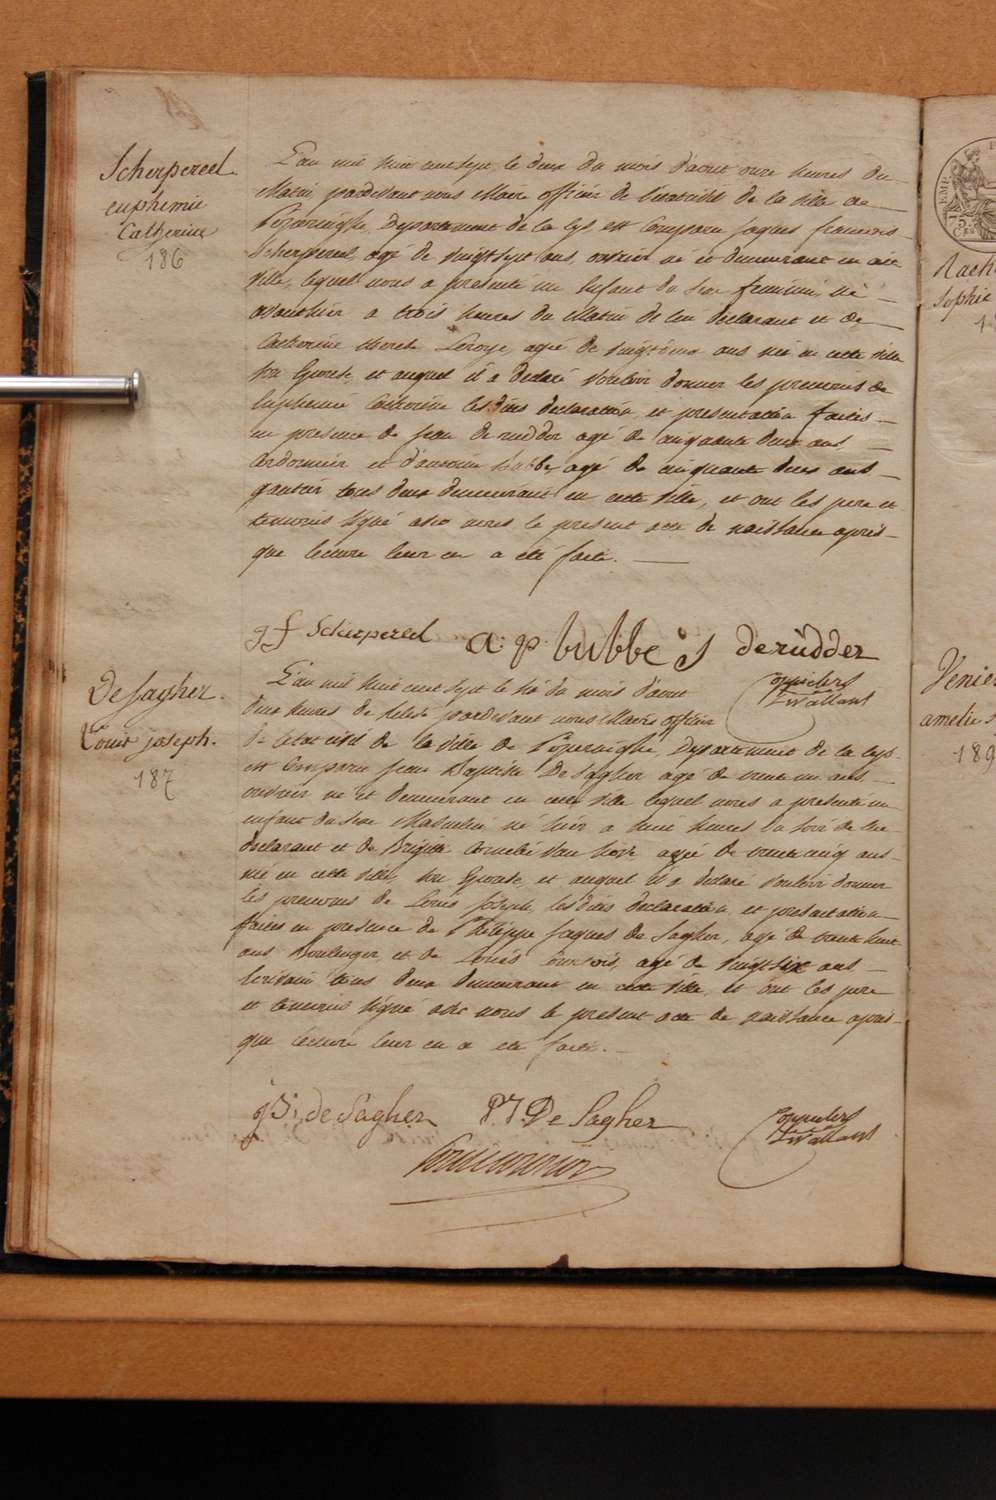 Scherpereel
euphemie
Catherine
186
L'an mil huit cent sept, le deux du mois d'aout onze heures du
Matin pardevant nous Maire officier de l'état civil de la ville de
Poperinghe, Departement de la Lys est Comparu Jaques francois
Scherpereel agé de vingt sept ans, ouvrier né et demeurant en cette
ville, lequel nous a presenté un Enfant du sexe feminin, né
avant hier a trois heures du Matin de lui declarant et de
Catherine Leroye, agée de ans née en cette ville
son Epouse, et auquel il a declaré vouloir donner les prenoms de
Euphemie Catherine lesdites declaration et presentation faites
en presence de Jean de rudder agé de cinquante deux ans,
Cordonnier et d'antoine babbe, agé de cinquante deux ans
gantier tous deux demeurant en cette ville, et ont les pere et
temoins signé avec nous le present acte de naissance après
que lecture leur en a été faite.
j f Scherpereel a: p: bubbe j derudder
De Sagher
Louis joseph.
187
L'an mil huit cent sept le du mois d'aout
deux heures de pardevant nous Maire officier
de l'état civil de la ville de Poperinghe, Departement de la Lys
est Comparu Jean Baptiste De Sagher agé de trente un ans
ouvrier né et demeurant en cette ville lequel nous a presenté un
enfant du sexe Masculin né hier a huit heures du soir de lui
declarant et de Brigitte Cornelie Van agée de trente cinq ans
née en cette ville son Epouse, et auquel il a declaré vouloir donner
les prenoms de Louis Joseph, lesdites declaration et presentation
faites en presence de Philippe Jaques de Sagher, agé de trente huit
ans Boulanger, et de Louis agé de vingt six ans
Ecrivain tous deux demeurant en cette ville, et ont les pere
et temoins signé avec nous le present acte de naissance après
que lecture leur en a été faite.
jB: de Sagher P. J. De Sagher
Sophie
amelie